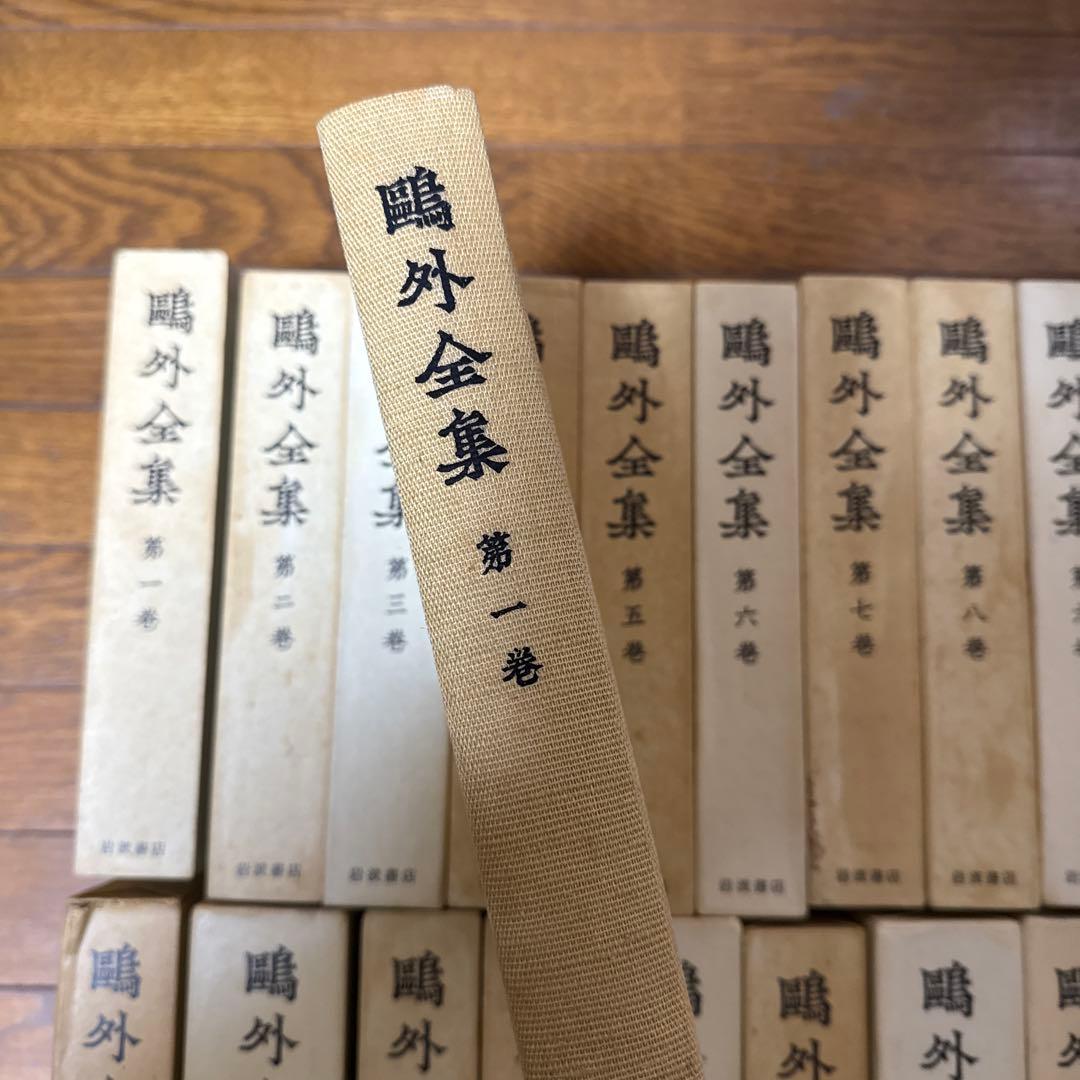 鷗外全集 第一巻
鷗外全集 第一巻 岩波書店
鷗外全集 第二巻 岩波書店
全集 第三巻 岩波書店
鷗外全集 第五巻
鷗外全集 第六巻 岩波書店
鷗外全集 第七巻 岩波書店
鷗外全集 第八巻 岩波書店
鷗外全集 第
鷗外
鷗外
鷗外
鷗外
鷗外
鷗外